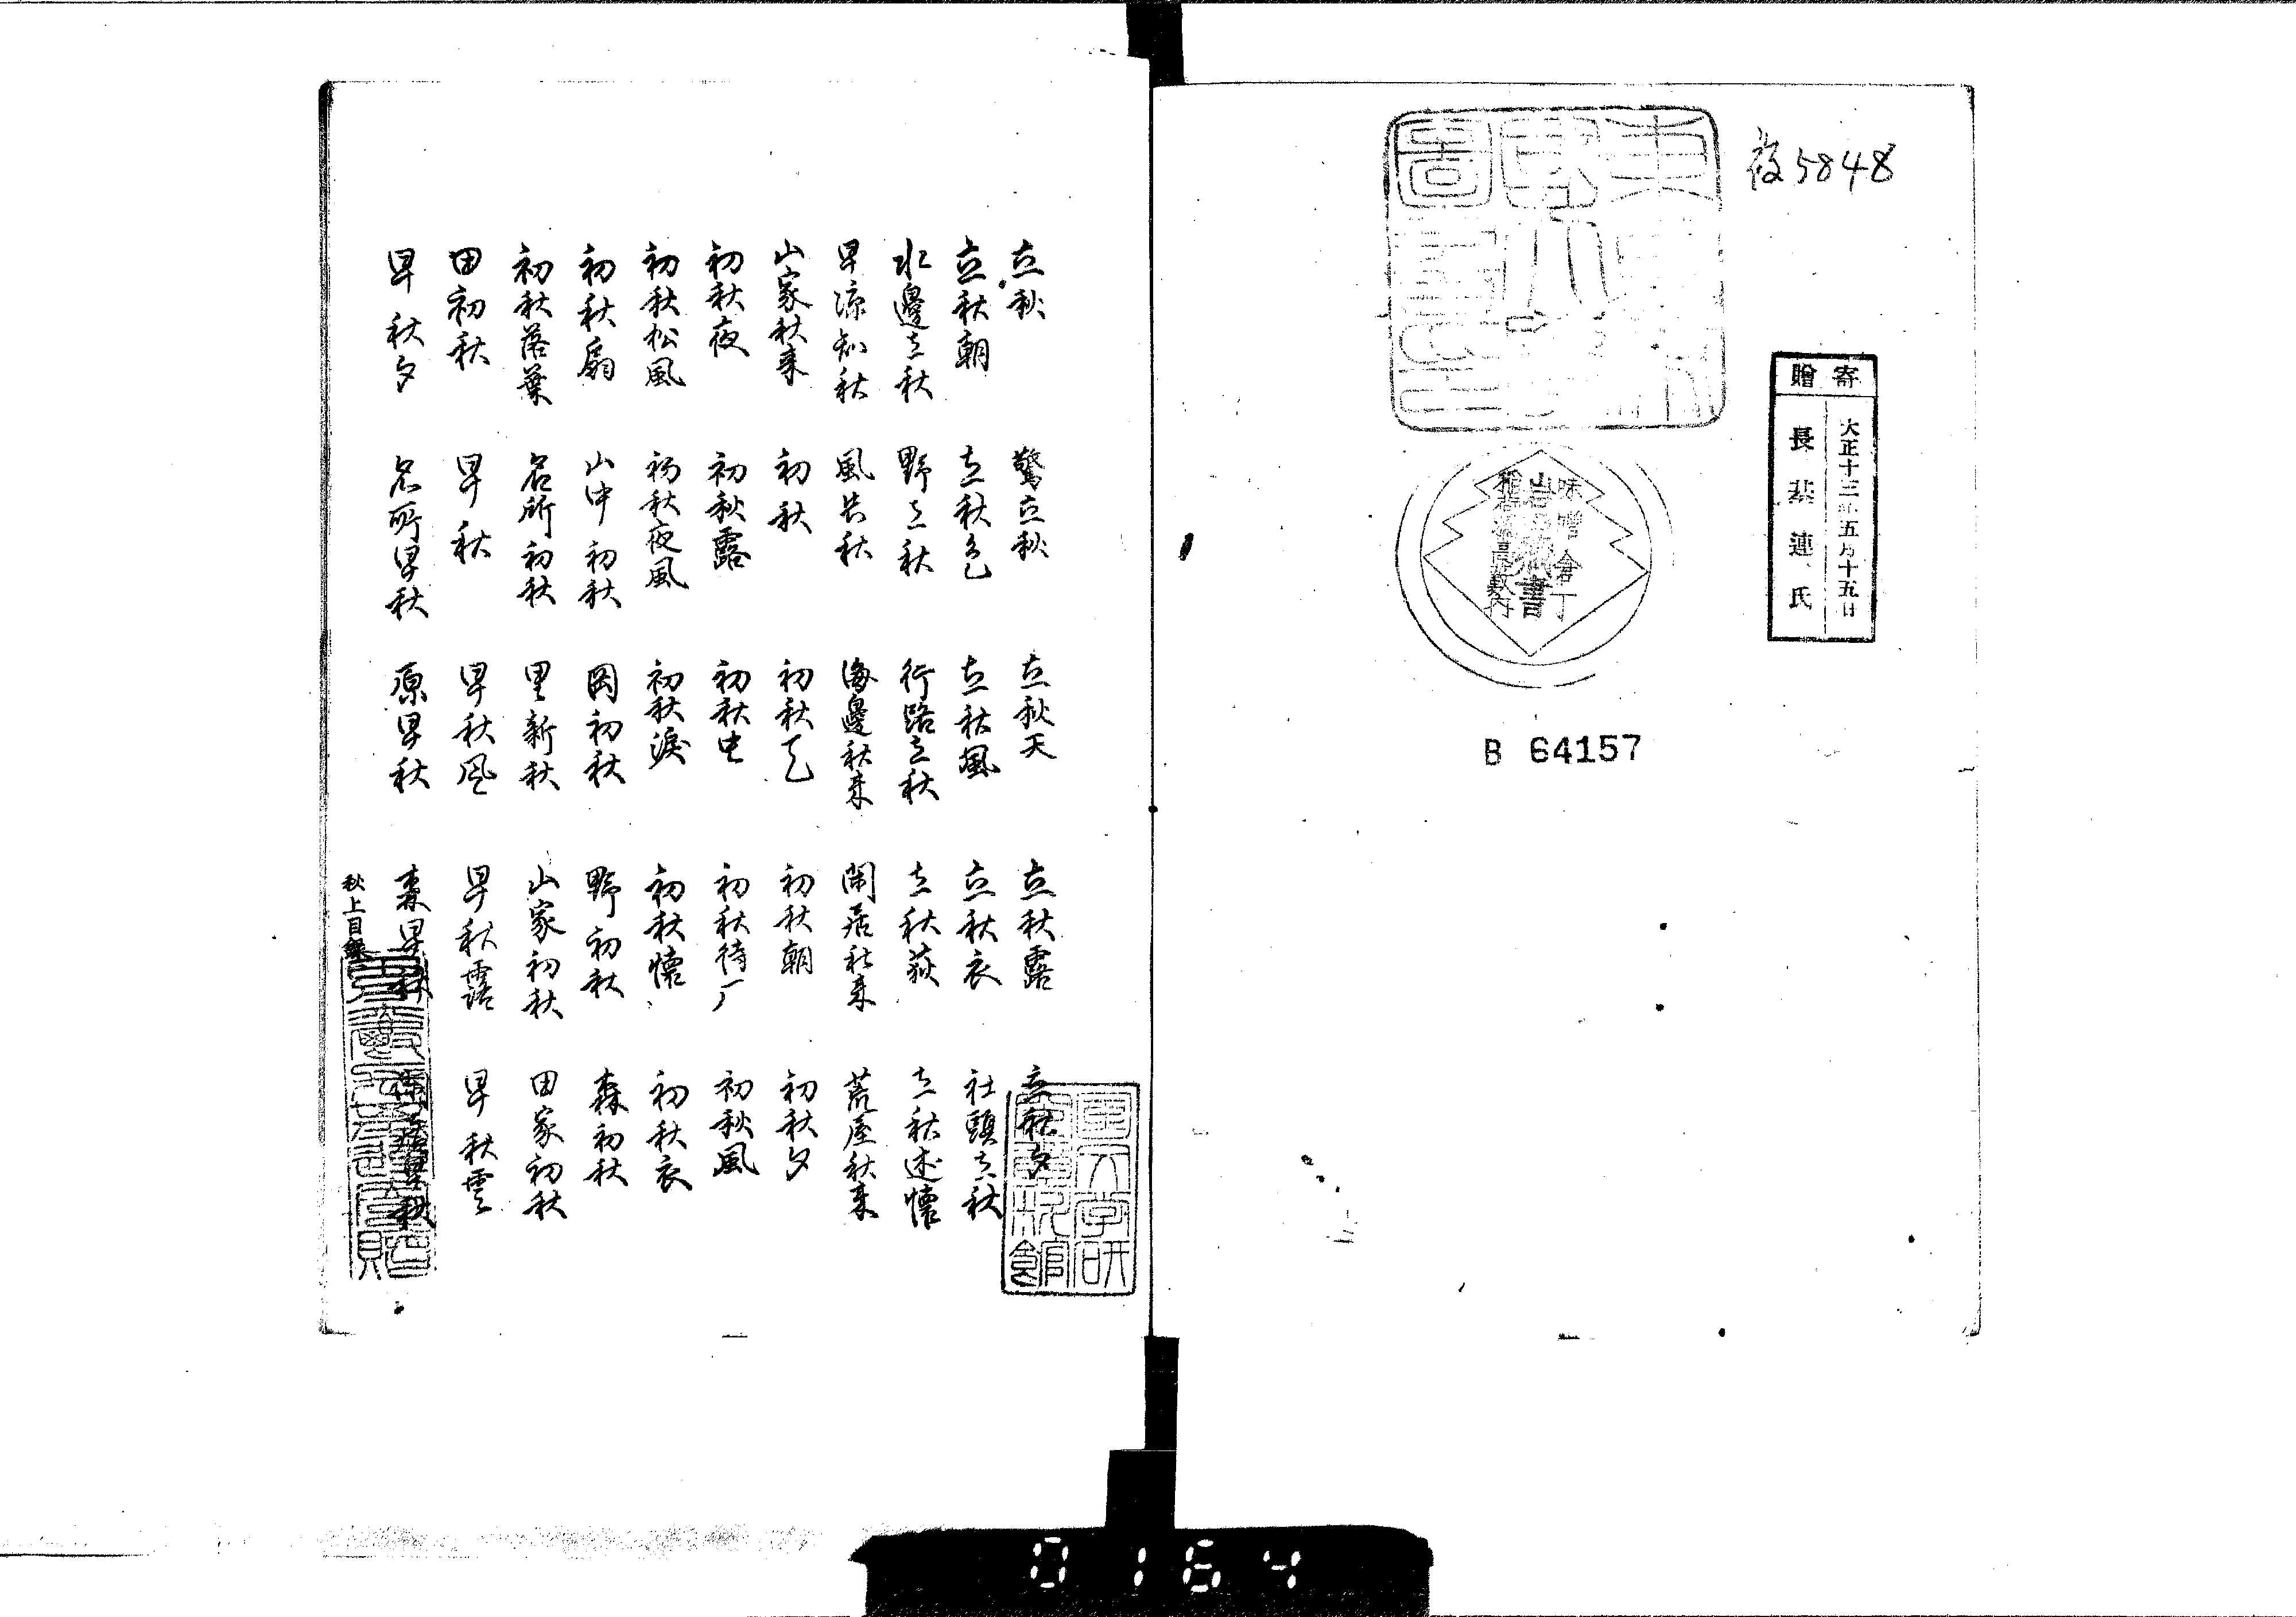 複5848
寄贈
大正十三年五月十五日
長基連氏
味噌倉丁
藏書
B 64157
立秋 驚立秋 立秋天 立秋露 立秋夕
立秋朝 立秋色 立秋風 立秋衣 社頭立秋
水邊立秋 野立秋 行路立秋 立秋荻 立秋述懐
早涼知秋 風告秋 海邊秋来 閑居秋来 荒屋秋来
山家秋来 初秋 初秋天 初秋朝 初秋夕
初秋夜 初秋露 初秋虫 初秋待厂 初秋風
初秋松風 初秋夜風 初秋涙 初秋懐 初秋衣
初秋扇 山中初秋 岡初秋 野初秋 森初秋
初秋落葉 名所初秋 里新秋 山家初秋 田家初秋
田初秋 早秋 早秋风 早秋露 早秋雲
早秋夕 名所早秋 原早秋 森早秋
秋上目録
0164